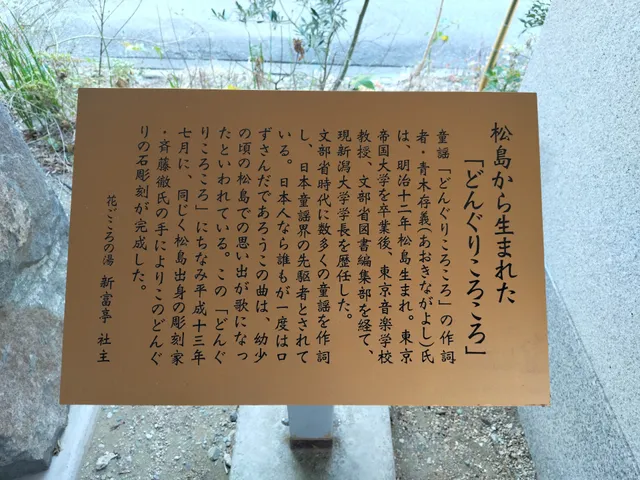 松島から生まれた
「どんぐりころころ」
童謡「どんぐりころころ」の作詞
者・青木存義(あおきながよし)氏
は、明治十二年松島生まれ。東京
帝国大学を卒業後、東京音楽学校
教授、文部省図書編集部を経て、
現新潟大学学長を歴任した。
文部省時代に数多くの童謡を作詞
し、日本童謡界の先駆者とされて
いる。日本人なら誰もが一度は口
ずさんだであろうこの曲は、幼少
の頃の松島での思い出が歌になっ
たといわれている。この「どんぐ
りころころ」にちなみ平成十三年
七月に、同じく松島出身の彫刻家
・斉藤徹氏の手によりこのどんぐ
りの石彫刻が完成した。
花ごころの湯 新富亭 社主